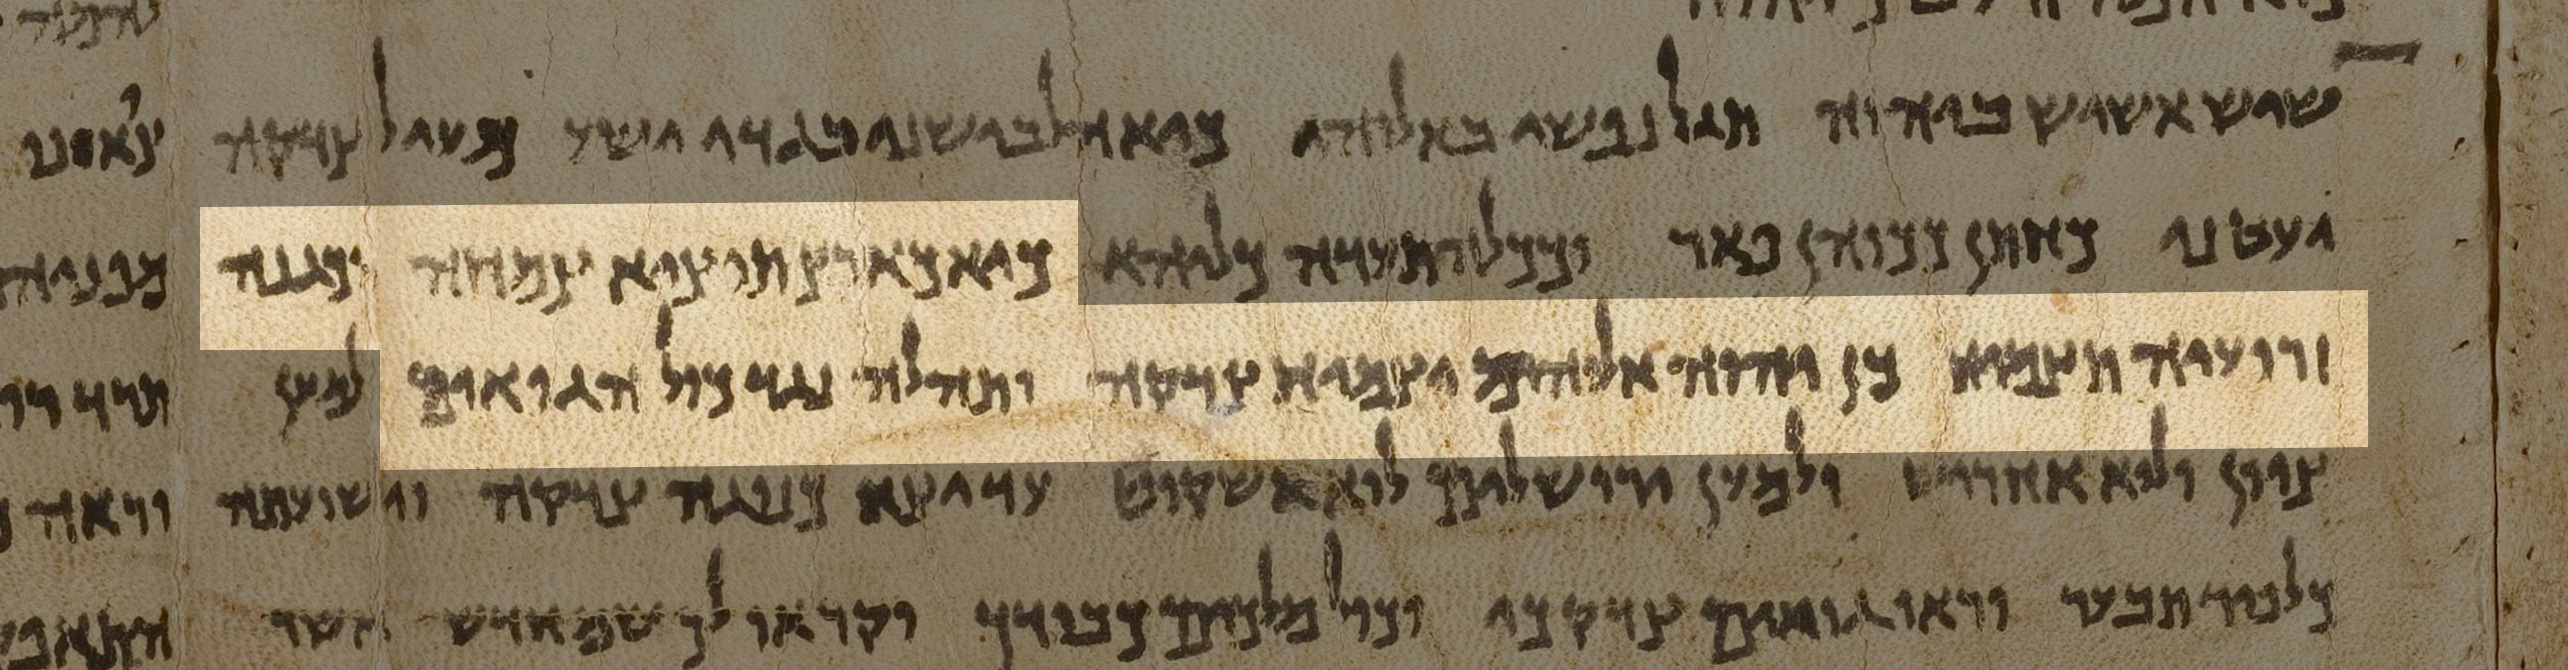 שוש אשיש ביהוה תגל נפשי באלוהי כיא הלבישני בגדי ישע מעיל צדקה
יעטני כחתן ככוהן פאר וככלה תעדה כליהא כיא כארץ תוציא צמחה וכגנה
וזרועיה תצמיח כן יהוה אלוהים יצמיח צדקה ותהלה נגד כול הגואים למען
ציון ולא אחריש ולמען ירושלים לוא אשקוט עד יצא כנגה צדקה וישועתה
כלפיד תבער וראו גואים צדקך וכול מלכים כבודך וקראו לך שם חדש אשר